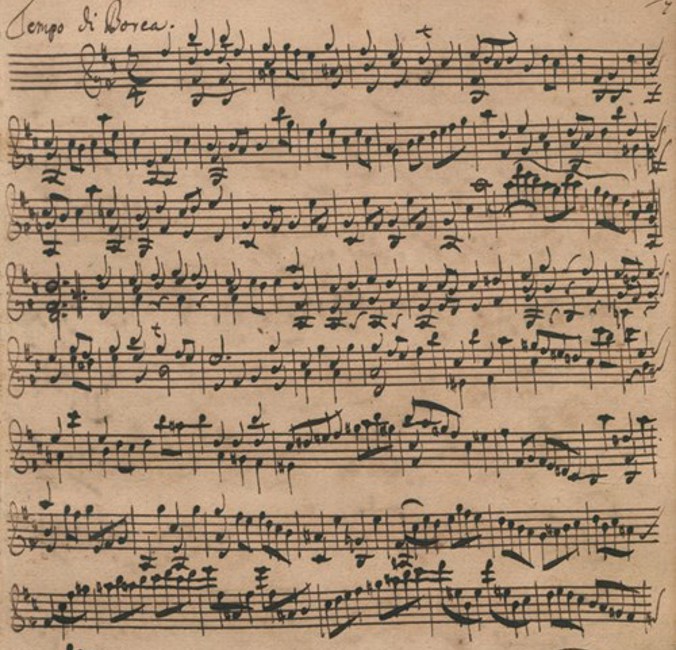 Tempo di Borea.